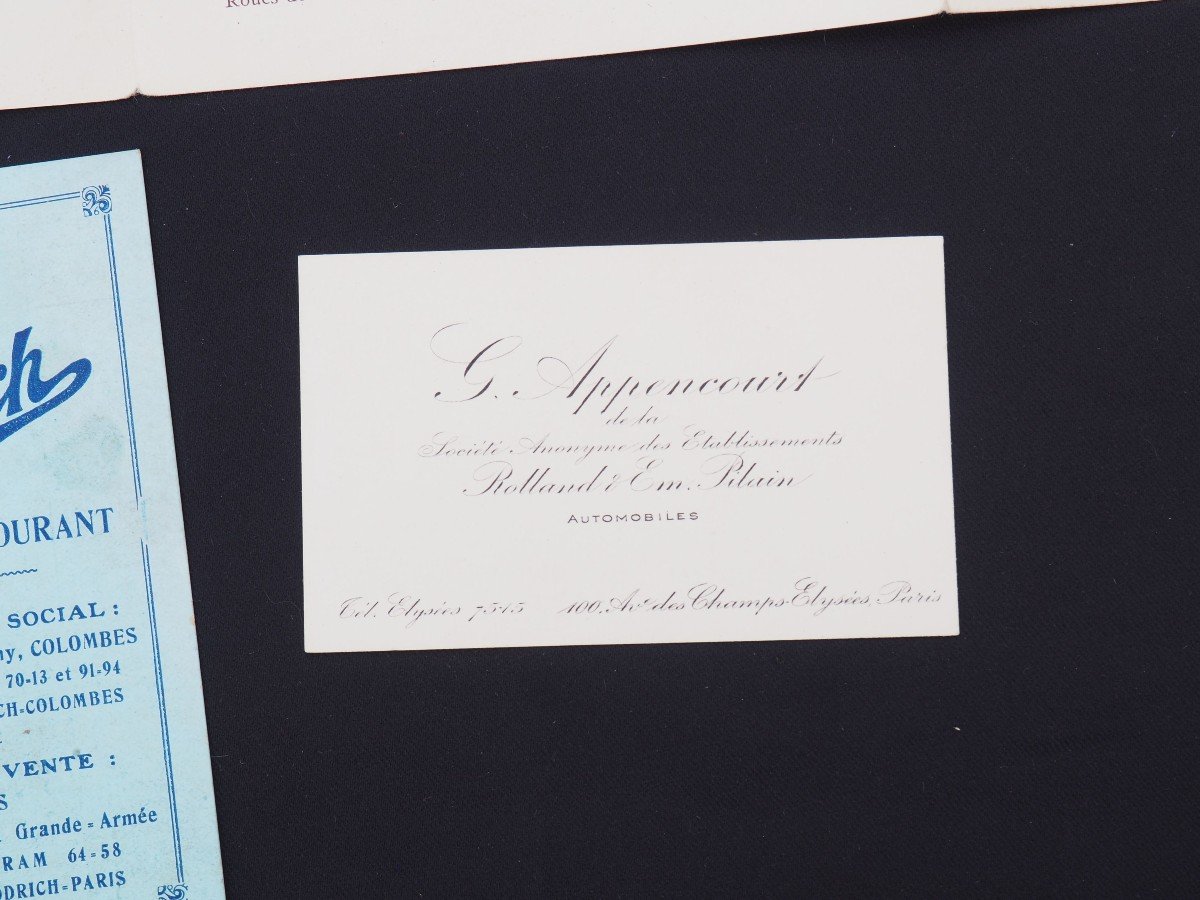 Roues de
ch
OURANT
SOCIAL :
ny, COLOMBES
70-13 et 91-94
CH-COLOMBES
VENTE :
S
Grande=Armée
RAM 64=58
ODRICH=PARIS
G. Appencourt
de la
Société Anonyme des Etablissements
Rolland & Em. Pilain
AUTOMOBILES
Tél. Elysées 75-15 100, Av.ue des Champs-Elysées, Paris